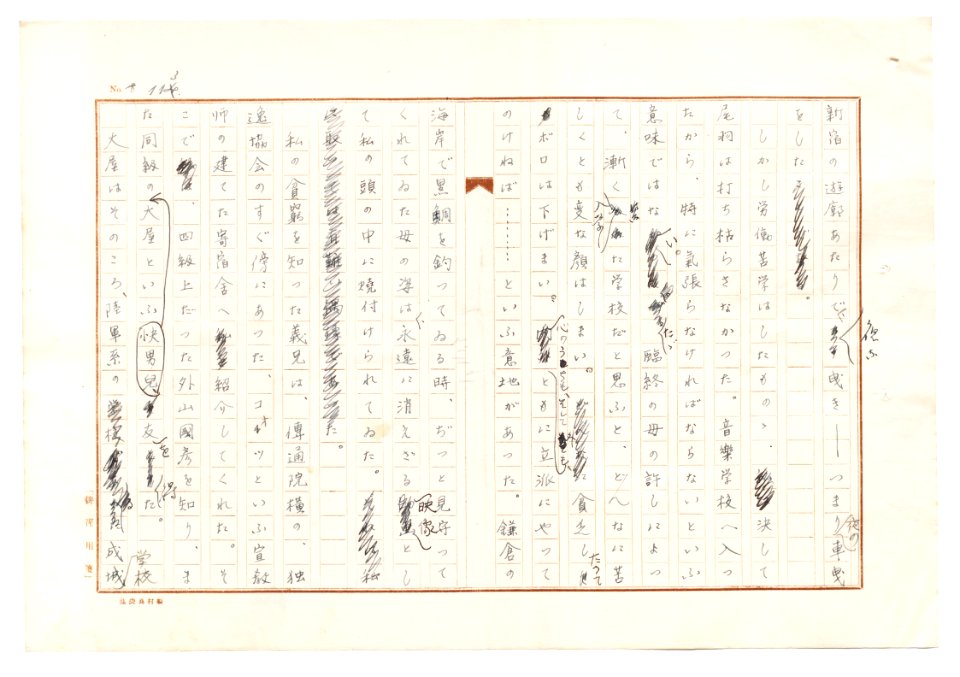 No
新宿の遊廓あたりで夜の曳き――つまり夜の車曳
をした。
しかし労働苦学はしたものゝ、決して
尾羽は打ち枯らさなかつた。音樂学校へ入つ
たから、特に気張らなければならないといふ
意味ではない。たゞ臨終の母の許しによつ
て、漸く入学た学校だと思ふと、どんなに苦
しくとも変な顔はしまい。貧乏したつて
ボロは下げまい。心のうちも、そして とも に立派にやつて
のけねば………といふ意地があつた。鎌倉の
海岸で黒鯛を釣つてゐる時、ぢつと見守つて
くれてゐた母の姿は永遠に消えざる映像とし
て私の頭の中に焼付けられてゐた。
私の貧窮を知つた義兄は、傳通院横の、独
逸協会のすぐ傍にあつた、コオツといふ宣教
師の建てた寄宿舎へ紹介してくれた。そ
こで、四級上だつた外山國彦を知り、ま
た同級の大屋といふ快男児を友に得た。
大屋はそのころ、陸軍系の学校成城学校